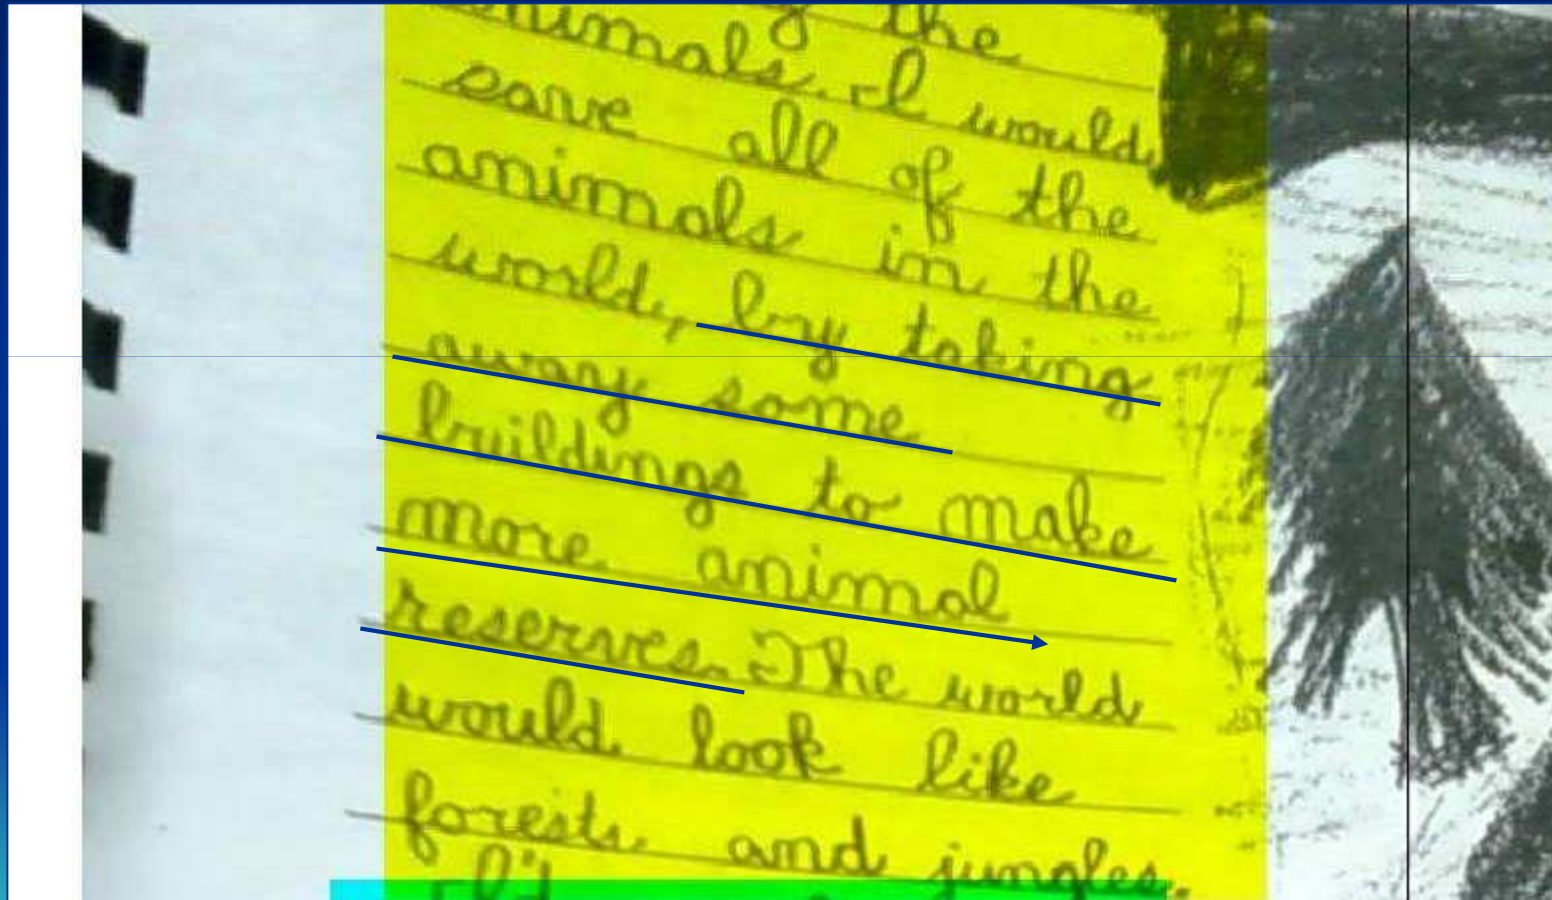 the
animals. I would
save all of the
animals in the
world, by taking
away some
buildings to make
more animal
reserves. The world
would look like
forests and jungles.
I'd